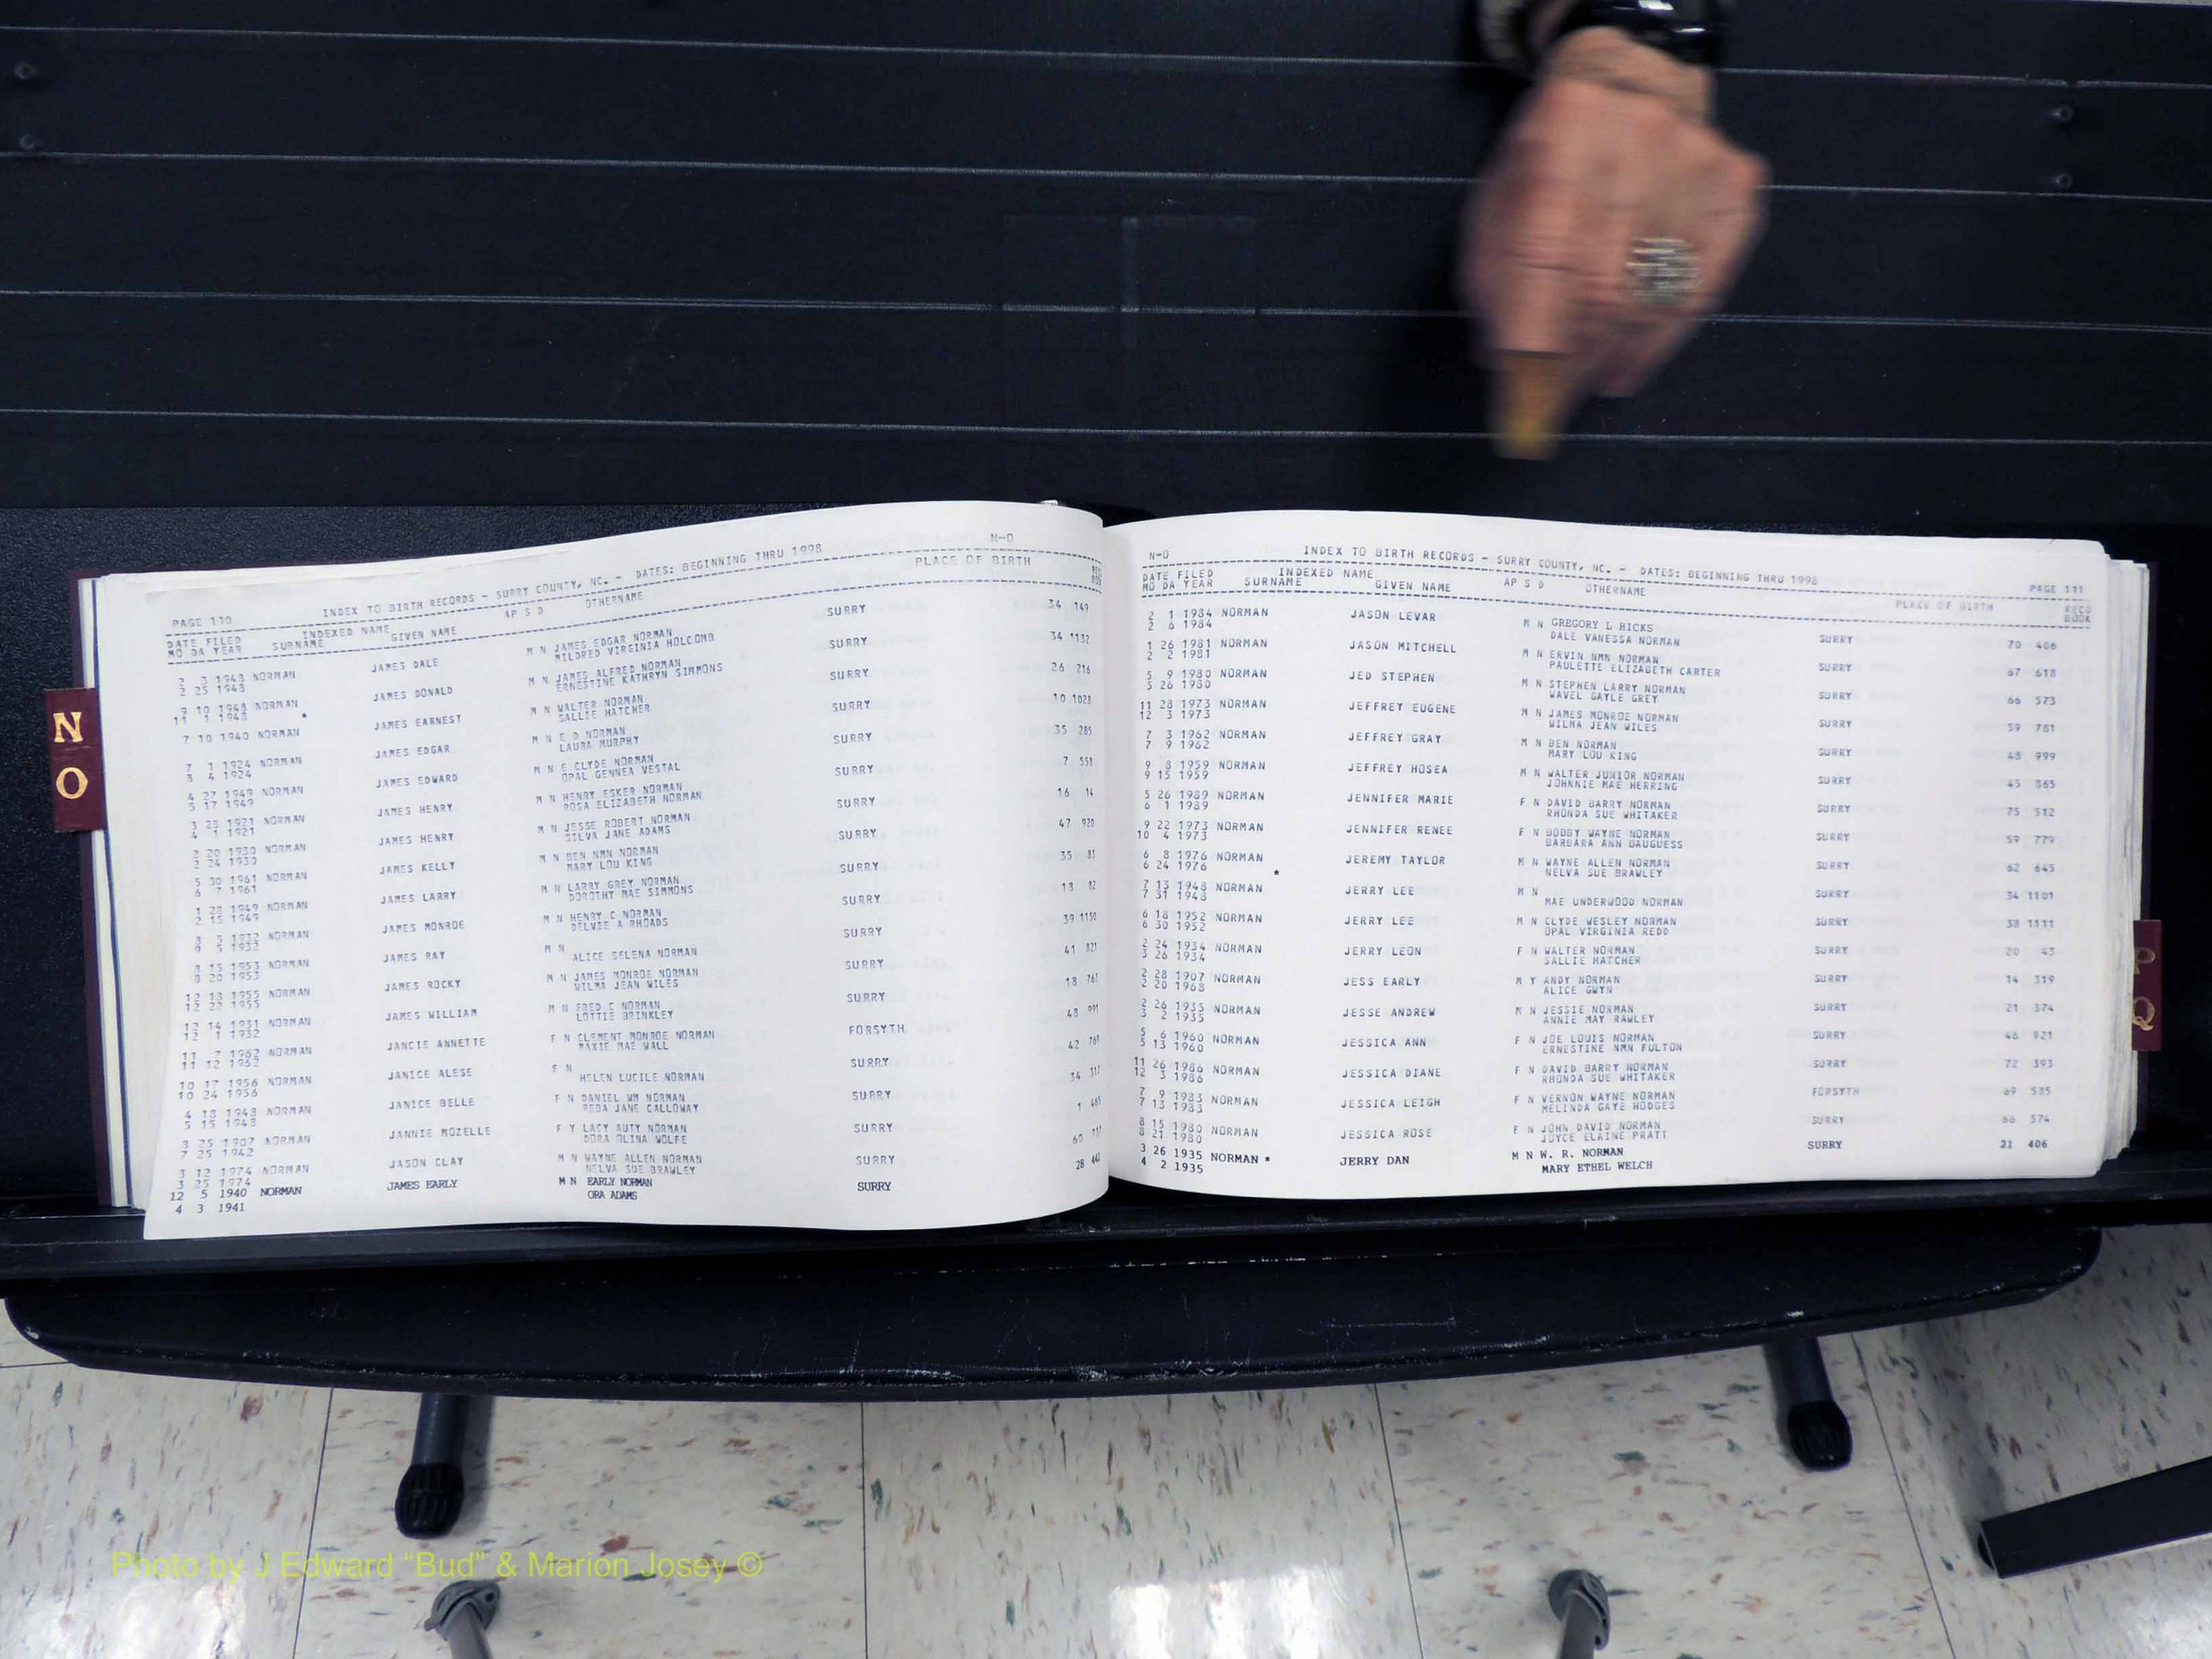 N
O
PAGE 110 INDEX TO BIRTH RECORDS - SURRY COUNTY, NC. - DATES: BEGINNING THRU 1998 N-O
DATE FILED INDEXED NAME AP S D OTHERNAME PLACE OF BIRTH
MO DA YEAR SURNAME GIVEN NAME
2 3 1948 NORMAN JAMES DALE M N JAMES EDGAR NORMAN SURRY 34 149
2 25 1948 MILDRED VIRGINIA HOLCOMB
9 10 1948 NORMAN JAMES DONALD M N JAMES ALFRED NORMAN SURRY 34 1132
11 1 1948 ERNESTINE KATHRYN SIMMONS
7 10 1940 NORMAN JAMES EARNEST M N WALTER NORMAN SURRY 26 216
SALLIE HATCHER
7 1 1924 NORMAN JAMES EDGAR M N E D NORMAN SURRY 10 1028
8 4 1924 LAURA MURPHY
4 27 1949 NORMAN JAMES EDWARD M N E CLYDE NORMAN SURRY 35 285
5 17 1949 OPAL GENNEA VESTAL
3 23 1921 NORMAN JAMES HENRY M N HENRY ESKER NORMAN SURRY 7 551
4 1 1921 ROSA ELIZABETH NORMAN
2 20 1930 NORMAN JAMES HENRY M N JESSE ROBERT NORMAN SURRY 16 14
2 24 1930 SILVA JANE ADAMS
5 30 1961 NORMAN JAMES KELLY M N BEN NMN NORMAN SURRY 47 920
6 7 1961 MARY LOU KING
1 28 1949 NORMAN JAMES LARRY M N LARRY GREY NORMAN SURRY 35 83
2 15 1949 DOROTHY MAE SIMMONS
8 5 1932 NORMAN JAMES MONROE M N HENRY C NORMAN SURRY 18 82
9 5 1932 DELVIE A RHOADS
8 15 1953 NORMAN JAMES RAY M N SURRY 39 1150
8 20 1953 ALICE SELENA NORMAN
12 18 1955 NORMAN JAMES ROCKY M N JAMES MONROE NORMAN SURRY 41 821
12 22 1955 WILMA JEAN WILES
12 14 1931 NORMAN JAMES WILLIAM M N FRED C NORMAN SURRY 18
12 1 1932 LOTTIE BRINKLEY
11 7 1962 NORMAN JANCIE ANNETTE F N CLEMENT MONROE NORMAN FORSYTH 48 991
11 12 1962 MAXIE MAE WALL
10 17 1956 NORMAN JANICE ALESE F N SURRY 42
10 24 1956 HELEN LUCILE NORMAN
4 18 1948 NORMAN JANICE BELLE F N DANIEL WM NORMAN SURRY 34
5 15 1948 REBA JANE CALLOWAY
3 25 1907 NORMAN JANNIE MOZELLE F Y LACY AUTY NORMAN SURRY 1
7 25 1942 DORA OLINA WOLFE
3 12 1974 NORMAN JASON CLAY M N WAYNE ALLEN NORMAN SURRY 60
3 25 1974 NELVA SUE BRAWLEY
12 5 1940 NORMAN JAMES EARLY M N EARLY NORMAN SURRY 28
4 3 1941 ORA ADAMS
N-O INDEX TO BIRTH RECORDS - SURRY COUNTY, NC. - DATES: BEGINNING THRU 1998 PAGE 111
DATE FILED INDEXED NAME AP S D OTHERNAME PLACE OF BIRTH RECD
MO DA YEAR SURNAME GIVEN NAME BOOK
2 1 1984 NORMAN JASON LEVAR M N GREGORY L HICKS SURRY 70 406
2 6 1984 DALE VANESSA NORMAN
1 26 1981 NORMAN JASON MITCHELL M N ERVIN NMN NORMAN SURRY 67 618
2 2 1981 PAULETTE ELIZABETH CARTER
5 9 1980 NORMAN JED STEPHEN M N STEPHEN LARRY NORMAN SURRY 66 573
5 26 1980 WAVEL GAYLE GREY
11 28 1973 NORMAN JEFFREY EUGENE M N JAMES MONROE NORMAN SURRY 59 781
12 3 1973 WILMA JEAN WILES
7 3 1962 NORMAN JEFFREY GRAY M N BEN NORMAN SURRY 48 999
7 9 1962 MARY LOU KING
9 8 1959 NORMAN JEFFREY HOSEA M N WALTER JUNIOR NORMAN SURRY 45 865
9 15 1959 JOHNNIE MAE HERRING
5 26 1989 NORMAN JENNIFER MARIE F N DAVID BARRY NORMAN SURRY 75 512
6 1 1989 RHONDA SUE WHITAKER
9 22 1973 NORMAN JENNIFER RENEE F N BOBBY WAYNE NORMAN SURRY 59 779
10 4 1973 BARBARA ANN BAUGUESS
6 8 1976 NORMAN JEREMY TAYLOR M N WAYNE ALLEN NORMAN SURRY 62 645
6 24 1976 * NELVA SUE BRAWLEY
7 13 1948 NORMAN JERRY LEE M N SURRY 34 1101
7 31 1948 MAE UNDERWOOD NORMAN
6 18 1952 NORMAN JERRY LEE M N CLYDE WESLEY NORMAN SURRY 38 1111
6 30 1952 OPAL VIRGINIA REDD
2 24 1934 NORMAN JERRY LEON F N WALTER NORMAN SURRY 20 43
3 26 1934 SALLIE HATCHER
2 28 1907 NORMAN JESS EARLY M Y ANDY NORMAN SURRY 14 319
2 20 1968 ALICE GWYN
2 26 1935 NORMAN JESSE ANDREW M N JESSIE NORMAN SURRY 21 374
3 2 1935 ANNIE MAY RAWLEY
5 6 1960 NORMAN JESSICA ANN F N JOE LOUIS NORMAN SURRY 46 921
5 13 1960 ERNESTINE NMN FULTON
11 26 1986 NORMAN JESSICA DIANE F N DAVID BARRY NORMAN SURRY 72 393
12 3 1986 RHONDA SUE WHITAKER
7 9 1983 NORMAN JESSICA LEIGH F N VERNON WAYNE NORMAN FORSYTH 69 585
7 13 1983 MELINDA GAYE HODGES
8 15 1980 NORMAN JESSICA ROSE F N JOHN DAVID NORMAN SURRY 66 574
8 21 1980 JOYCE ELAINE PRATT
3 26 1935 NORMAN * JERRY DAN M N W. R. NORMAN SURRY 21 406
4 2 1935 MARY ETHEL WELCH
P
Q
Photo by J Edward “Bud” & Marion Josey ©